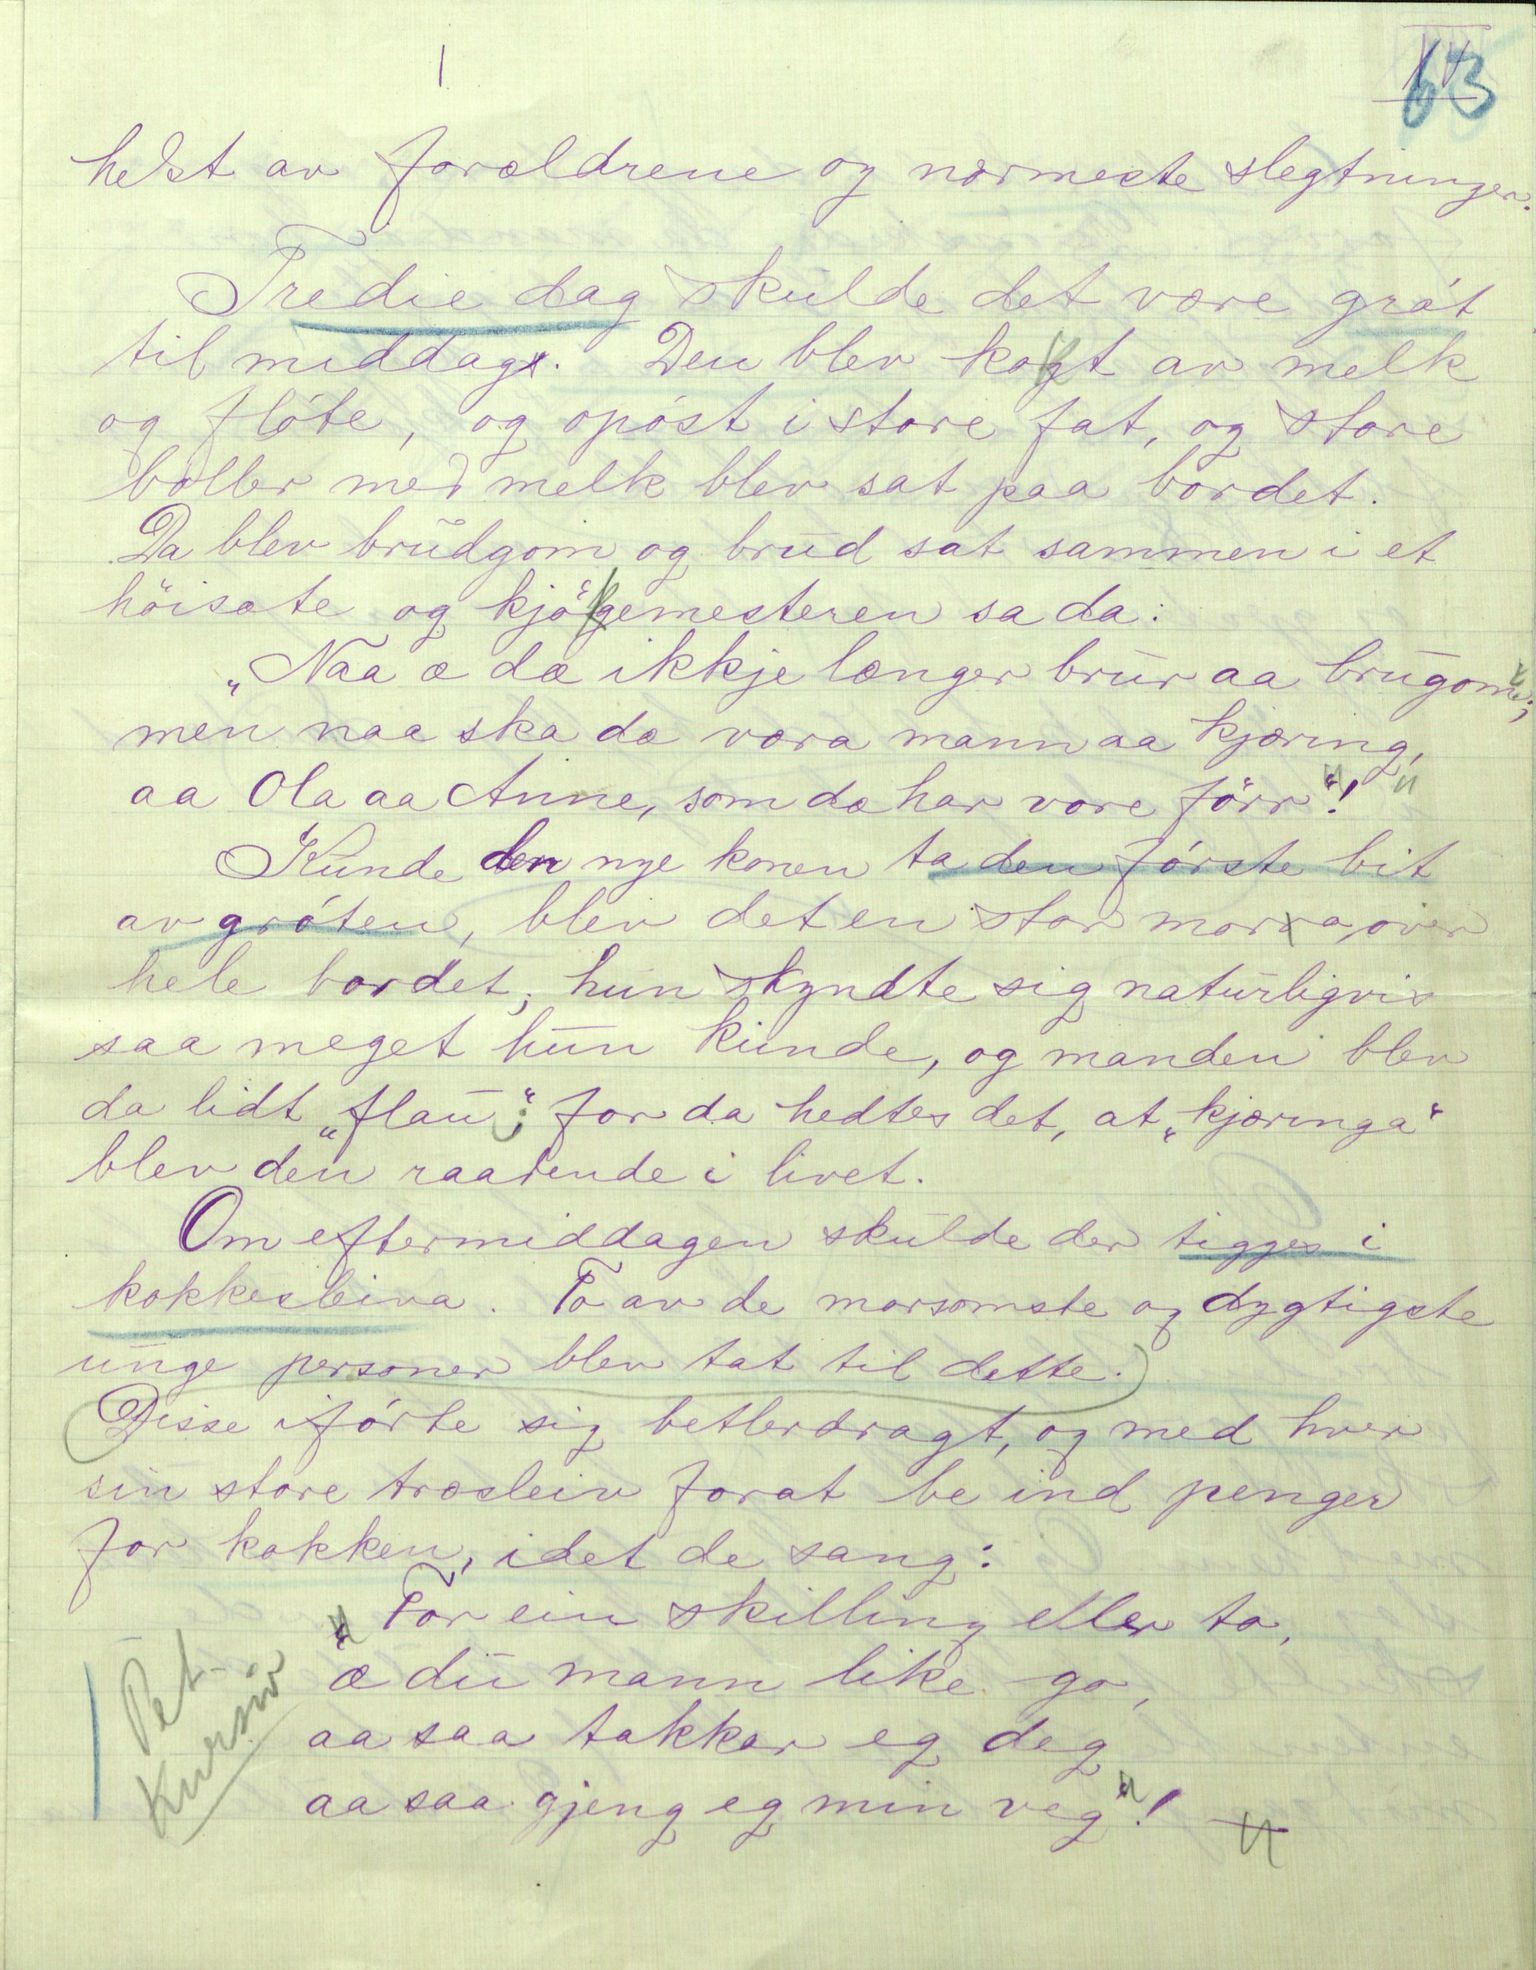 1
63
helst av forældrene og nærmeste slegtninger.
Tredie dag skulde det være grøt
til middag. Den blev kokt av melk
og fløte, og opøst i store fat, og store
boller med melk blev sat paa bordet.
Da blev brudgom og brud sat sammen i et
höisæte og kjökemesteren sa da:
„Naa æ dæ ikkje længer brur aa brugom;
men naa ska dæ væra mann aa kjæring,
aa Ola aa Anne, som dæ har være förr“!
Kunde den nye konen ta den første bit
av grøten, blev det en stor morro over
hele bordet; hun skyndte sig naturligvis
saa meget hun kunde, og manden blev
da lidt „flau“; for da hedtes det, at „kjæringa“
blev den raadende i livet.
Om eftermiddagen skulde der tigges i
kokkesleiva. To av de morsomste og dygtigste
unge personer blev tat til dette.
Disse iførte sig betlerdragt, og med hver
sin store træsleiv forat be ind penger
for kokken, idet de sang:
„For ein skilling eller to,
æ du mann like go,
aa saa takkar eg deg
aa saa gjeng eg min veg“!
Pet-
Kursiv